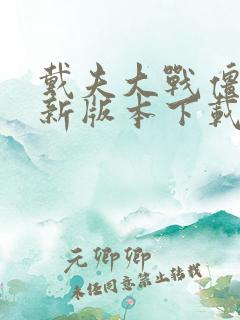 戴夫大戰僵
新版本下載
元卿卿
未经同意禁止转载